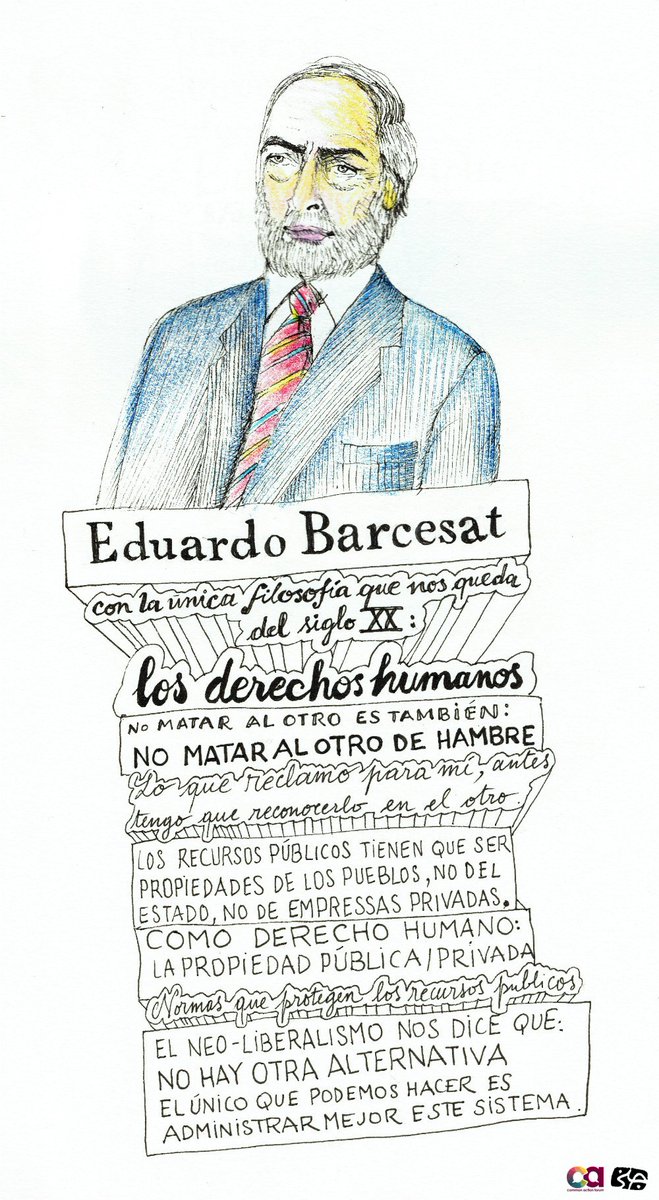 Eduardo Barcesat
con la única filosofía que nos queda
del siglo XX:
los derechos humanos
NO MATAR AL OTRO ES TAMBIÉN:
NO MATAR AL OTRO DE HAMBRE
Lo que reclamo para mí, antes
tengo que reconocerlo en el otro.
LOS RECURSOS PÚBLICOS TIENEN QUE SER
PROPIEDADES DE LOS PUEBLOS, NO DEL
ESTADO, NO DE EMPRESSAS PRIVADAS.
COMO DERECHO HUMANO:
LA PROPIEDAD PÚBLICA/PRIVADA
Normas que protegen los recursos publicos
EL NEO-LIBERALISMO NOS DICE QUE:
NO HAY OTRA ALTERNATIVA
EL ÚNICO QUE PODEMOS HACER ES
ADMINISTRAR MEJOR ESTE SISTEMA.
ca
common action forum